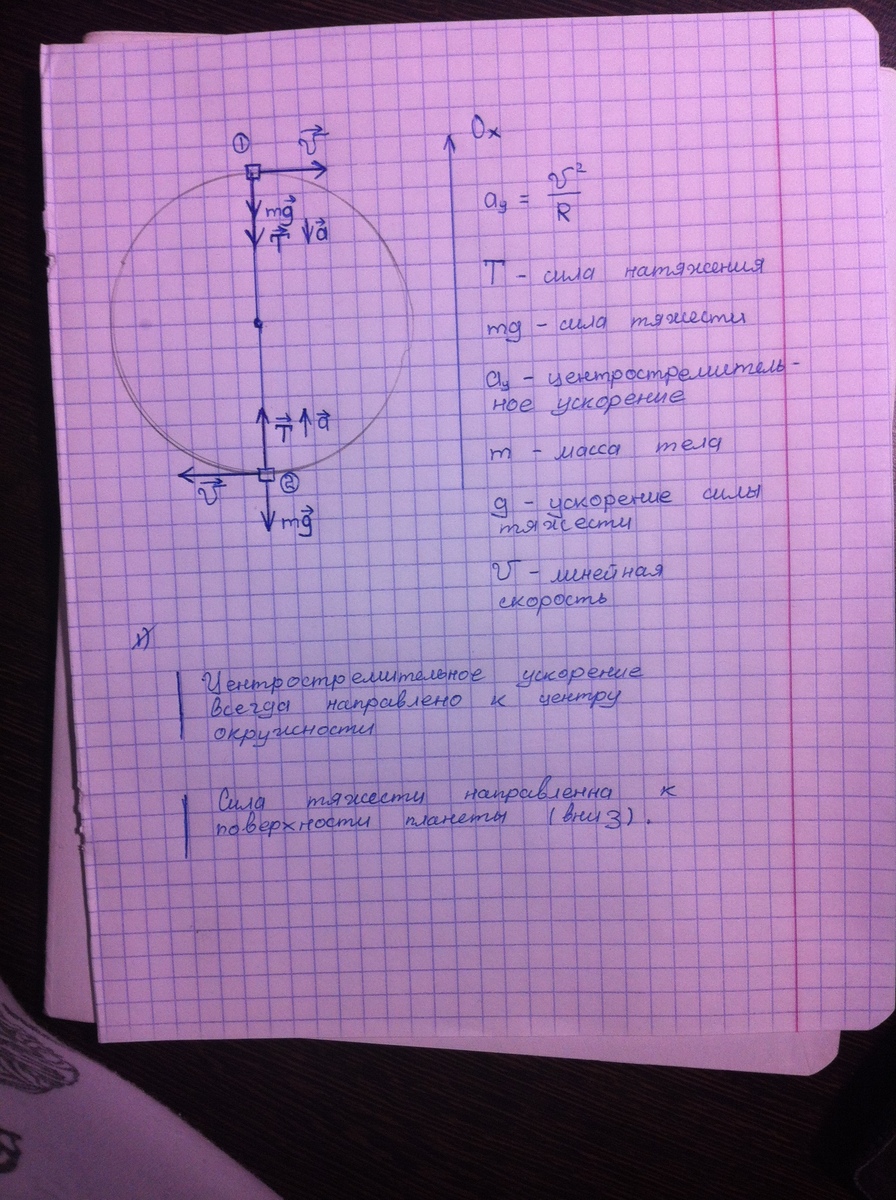 ①
v⃗
mg⃗
T⃗ a⃗
T⃗ a⃗
v⃗
②
mg⃗
Ox
aц = v²/R
T - сила натяжения
mg - сила тяжести
aц - центростремитель-
ное ускорение
m - масса тела
g - ускорение силы
тяжести
v - линейная
скорость
Центростремительное ускорение
всегда направлено к центру
окружности
Сила тяжести направленна к
поверхности планеты (вниз).